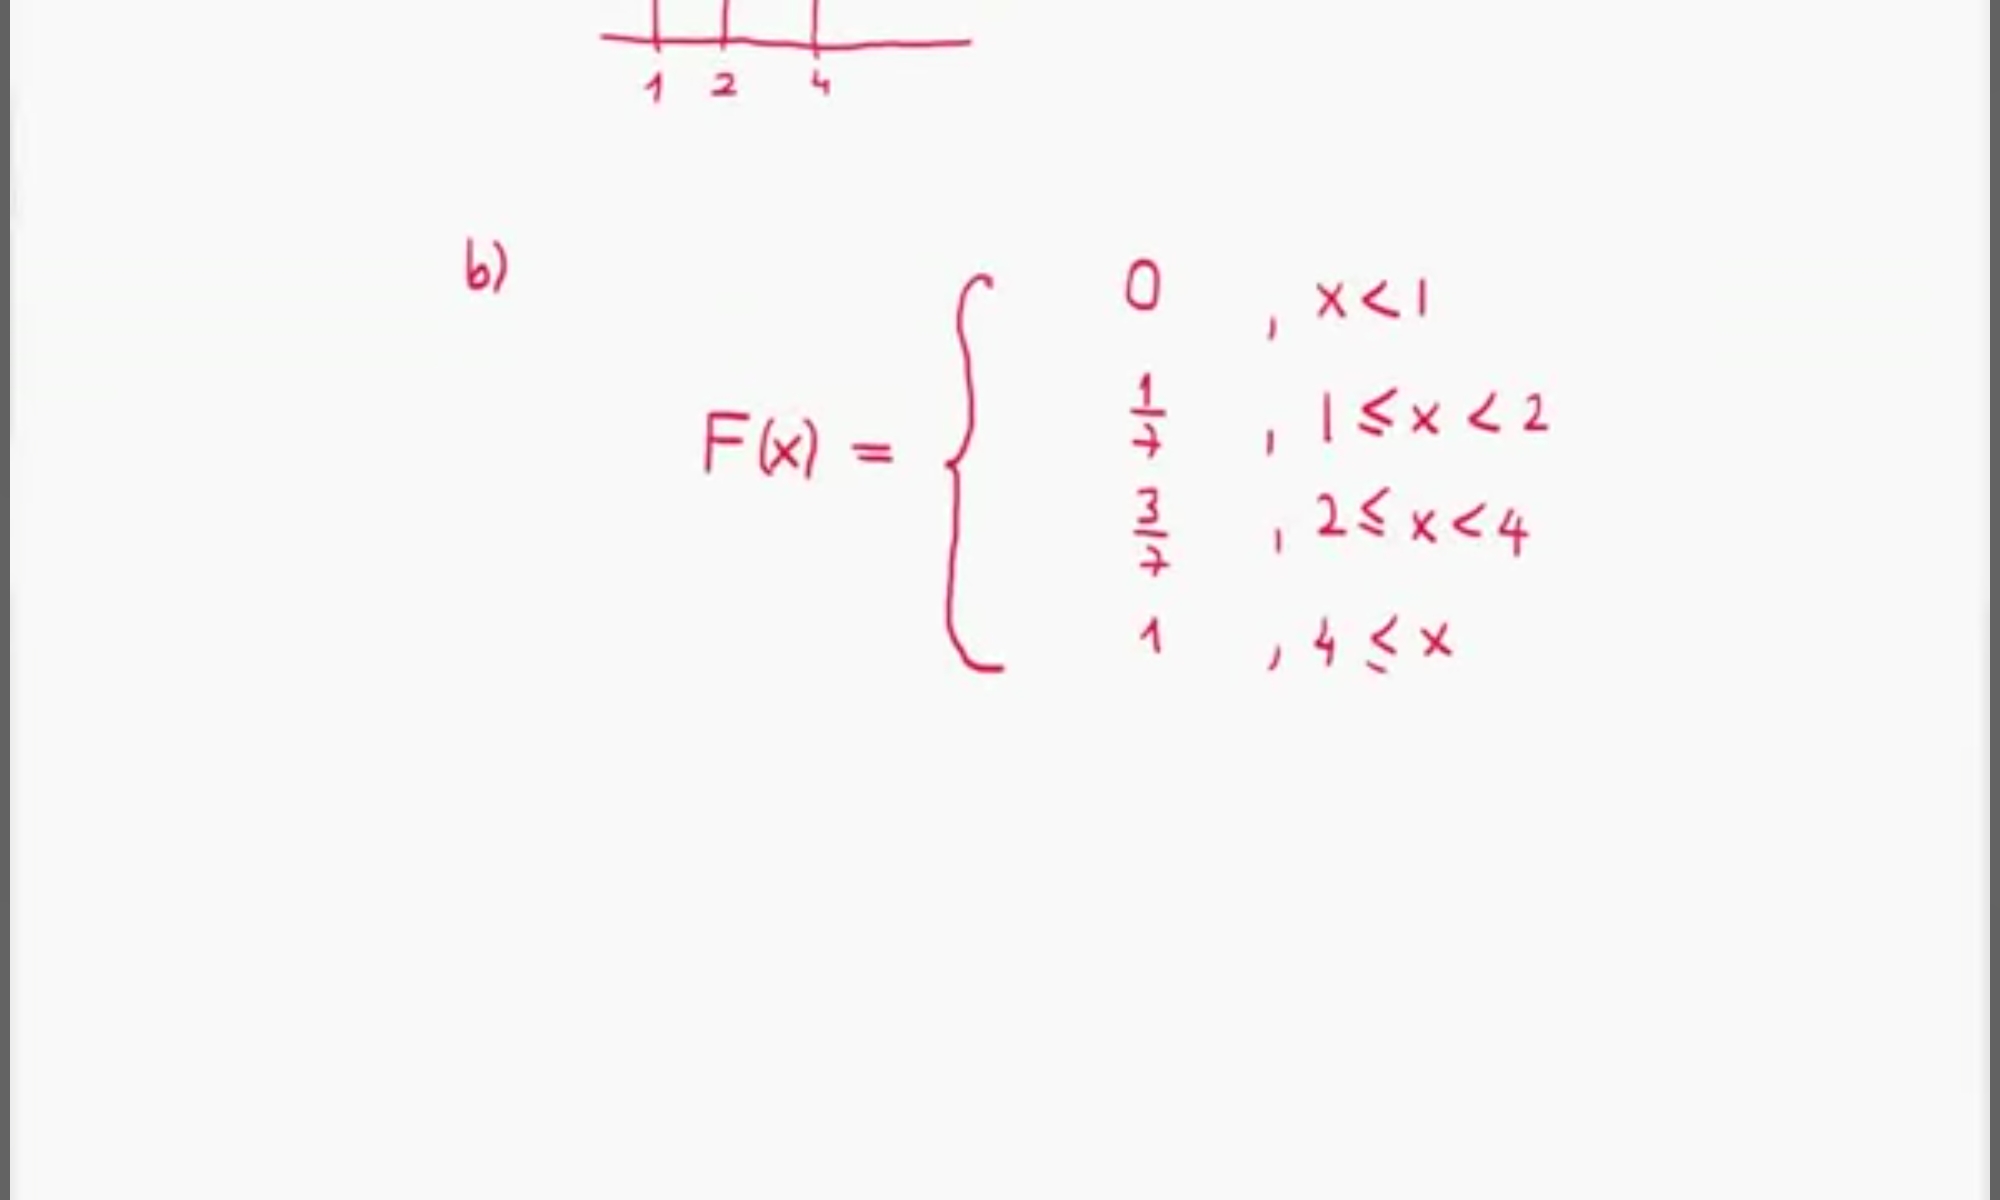 1 2 4
b)
0 , x < 1
1/7 , 1 ≤ x < 2
F(x) =
3/7 , 2 ≤ x < 4
1 , 4 ≤ x